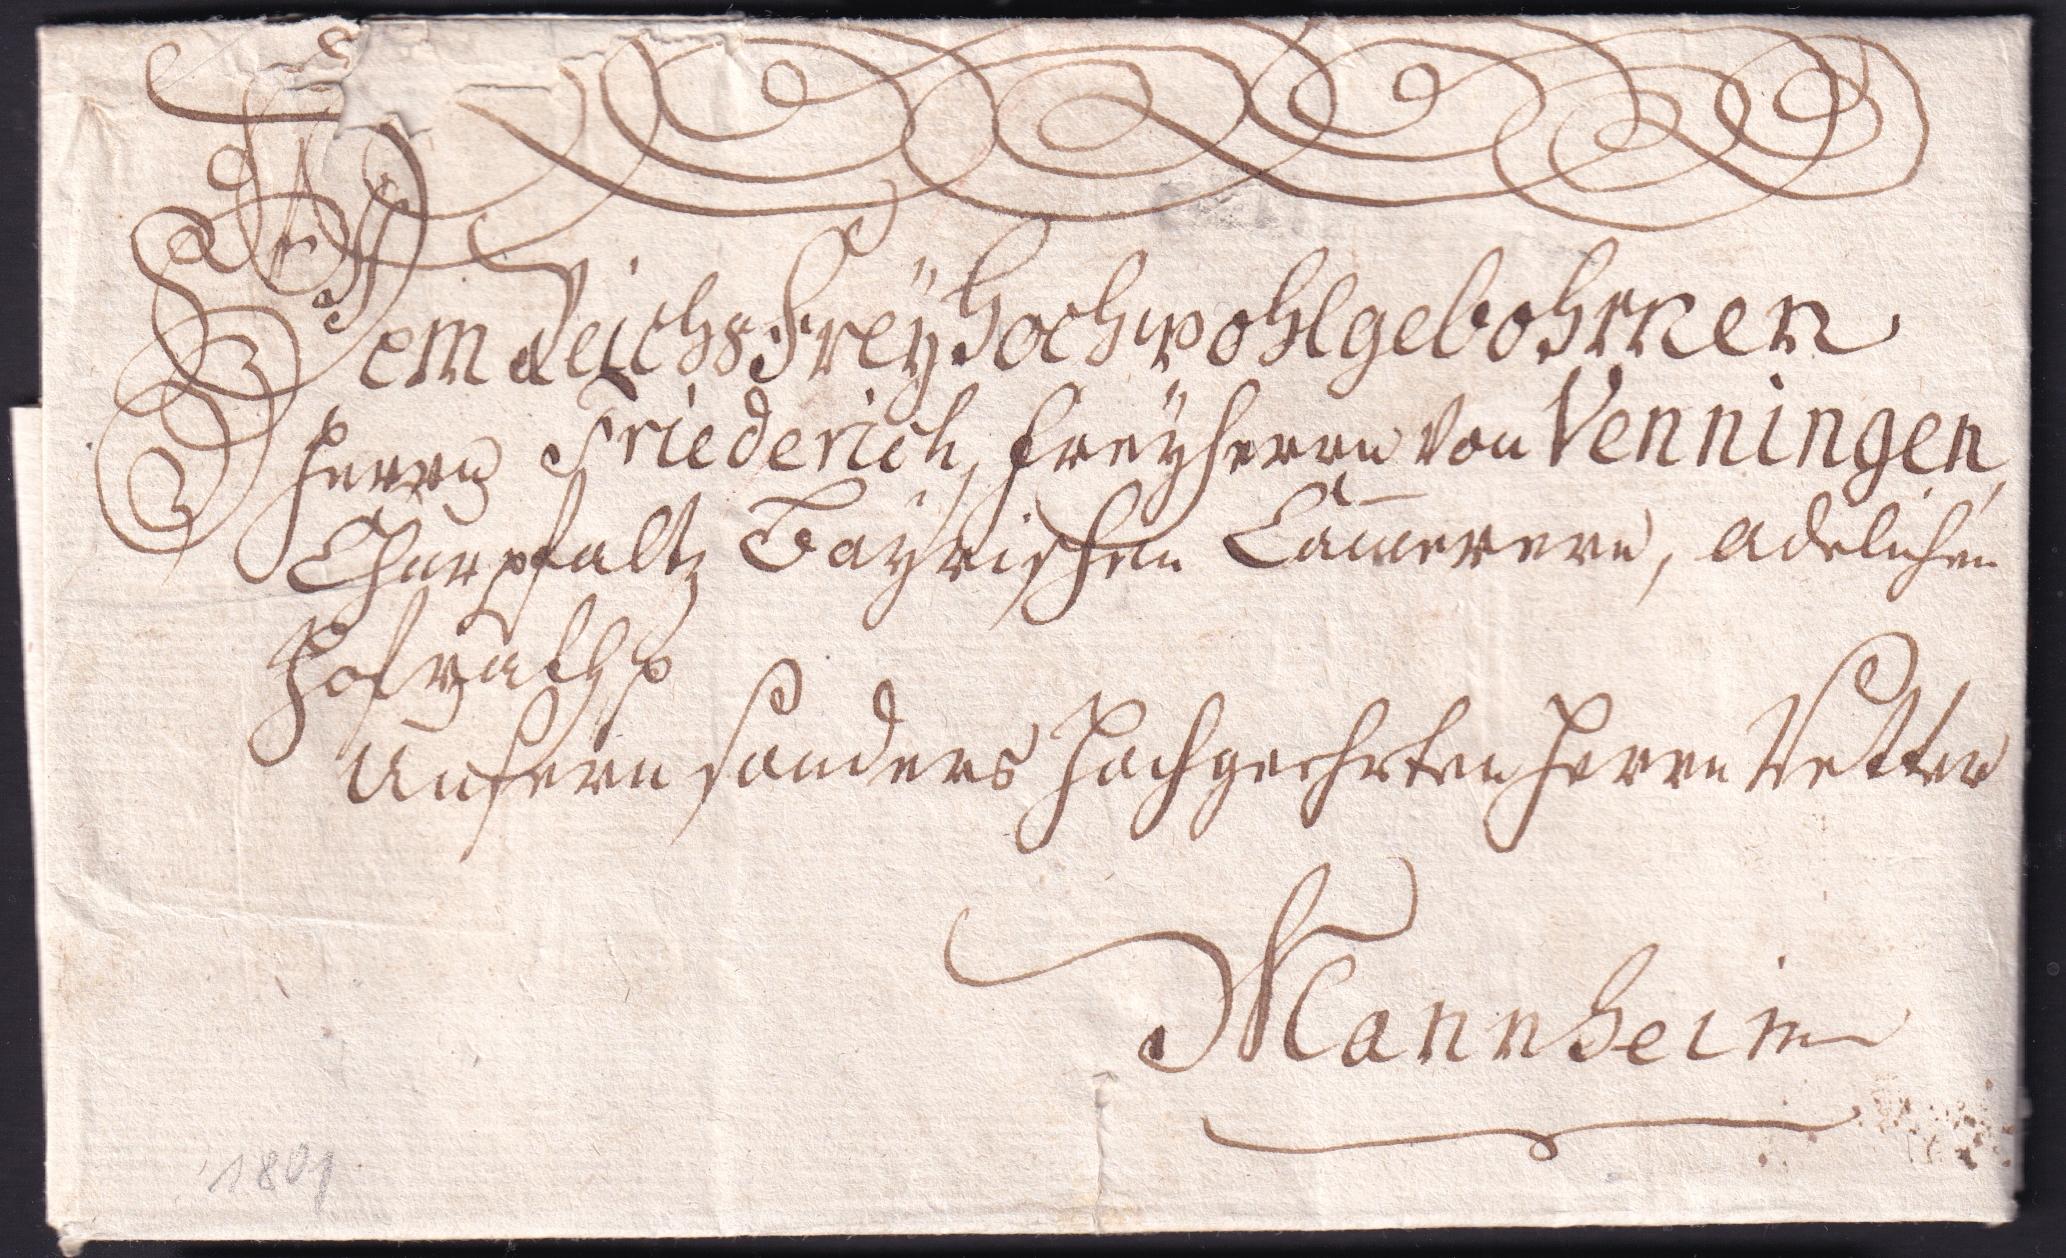 Dem ReichsFreyHochwohlgebohrnen
Herrn Friederich, Freyherrn von Venningen,
Churpfaltz Bayrischen Cam̅erern, adelichen
Hofraths
Unsern sonders Hochgeehrten Herrn Vetter
Mannheim
1801